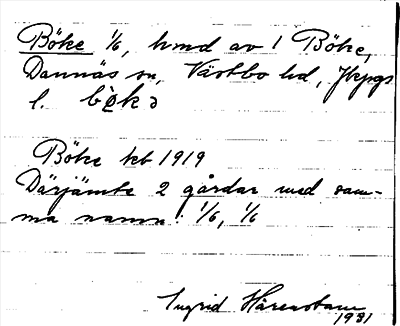 Böke 1/6, hmd av 1 Böke,
Dannäs sn, Västbo hd, Jkpgs
l. bö̀kə
Böke kb 1919
Därjämte 2 gårdar med sam-
ma namn! 1/6, 1/6
Ingrid Härenstam
1931